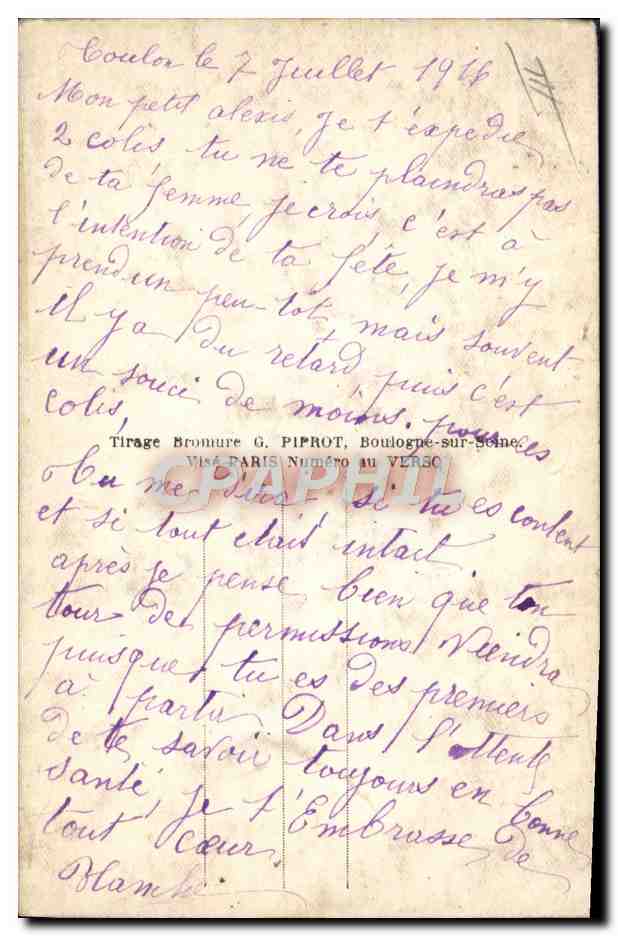 Toulon le 7 Juillet 1916
Mon petit alexis, Je t'expédie
2 colis, tu ne te plaindras pas
de ta femme, je crois, c'est à
l'intention de ta fête, je m'y
prend un peu tot, mais souvent
il y a du retard, puis c'est
un souci de moins. pour ces
colis,
Tirage Bromure G. PIPROT, Boulogne-sur-Seine.
Visé PARIS Numéro au VERSO
CPAPHIL
tu me diras, si tu es content
et si tout était intact
après je pense bien que ton
tour de permissions Viendra
puisque tu es des premiers
à partir Dans l'attente
de te savoir toujours en bonne
santé, je t'Embrasse de
tout cœur.
Blanche